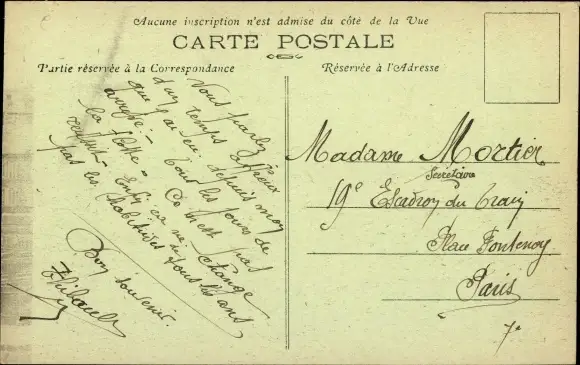 Aucune inscription n'est admise du côté de la Vue
CARTE POSTALE
Partie réservée à la Correspondance
Réservée à l'Adresse
Vous parlez
d'un temps affreux
que j'ai eu depuis mon
arrivé. Tous les jours de
la flotte. Ce n'est pas
Enfin ça ne change
pas les habitudes tous les ans
Bon souvenir.
Thibault
Madame Mortier
Secrétaire
19e Escadron du train
Place Fontenoy
Paris
7e